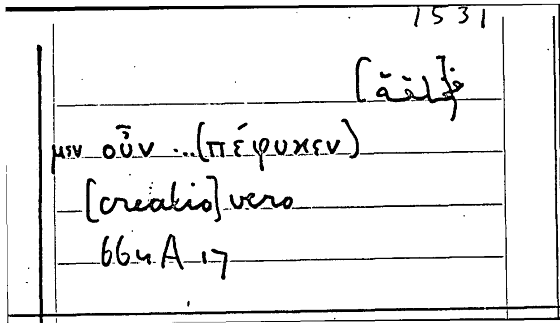 1531
μεν οὖν ...(πέφυκεν)
[creatio] vero
664 A 17